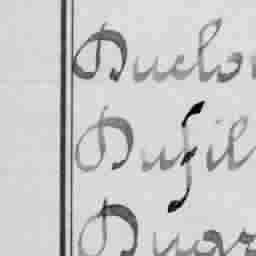 Duclo
Dufil
Dugr